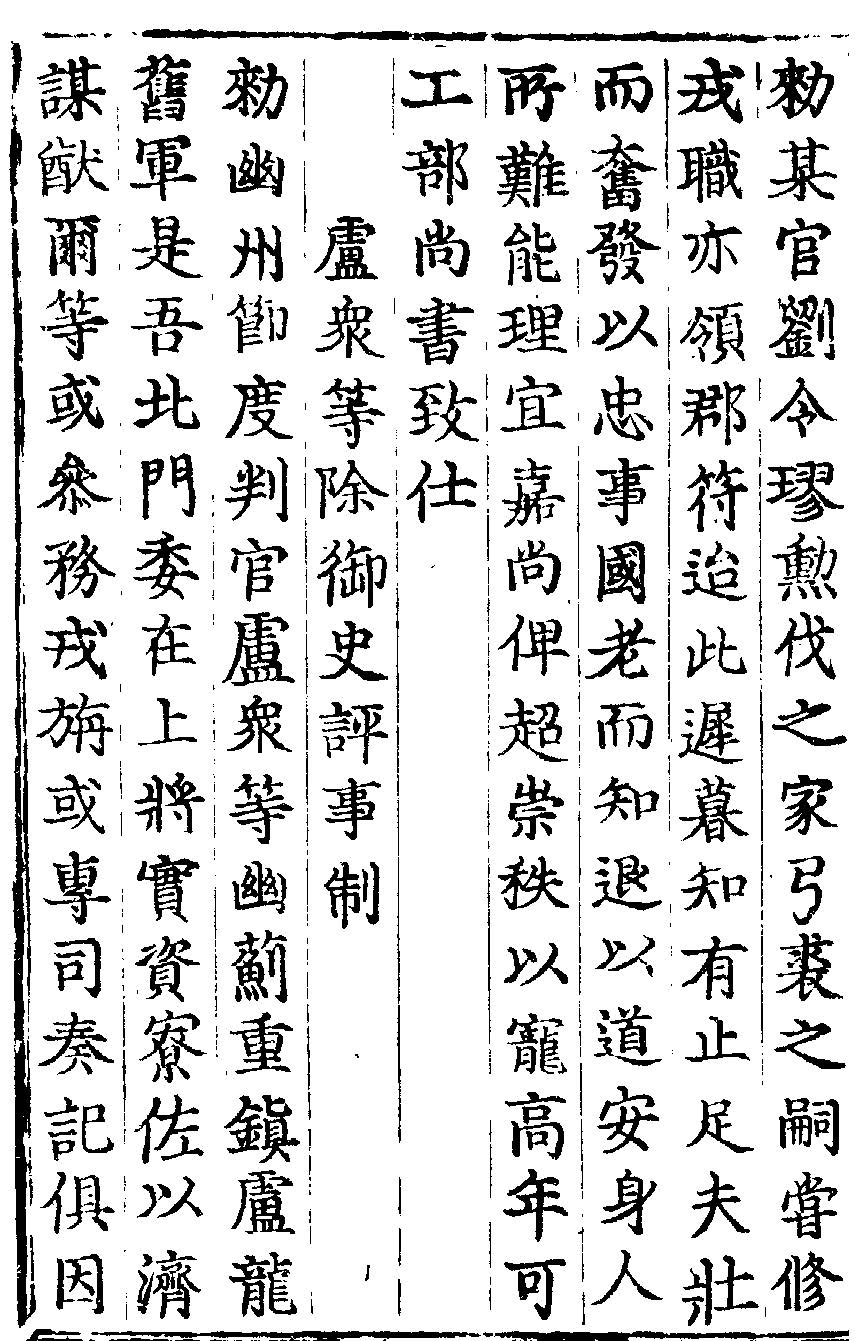 勑某官劉令璆勲伐之家弓裘之嗣嘗修
戎職亦領郡符迨此遲暮知有止足夫壯
而奮發以忠事國老而知退以道安身人
所難能理宜嘉尚俾超崇秩以寵高年可
工部尚書致仕
盧衆等除御史評事制
勑幽州節度判官盧衆等幽薊重鎮盧龍
舊軍是吾北門委在上將實資寮佐以濟
謀猷爾等或叅務戎旃或專司奏記俱因